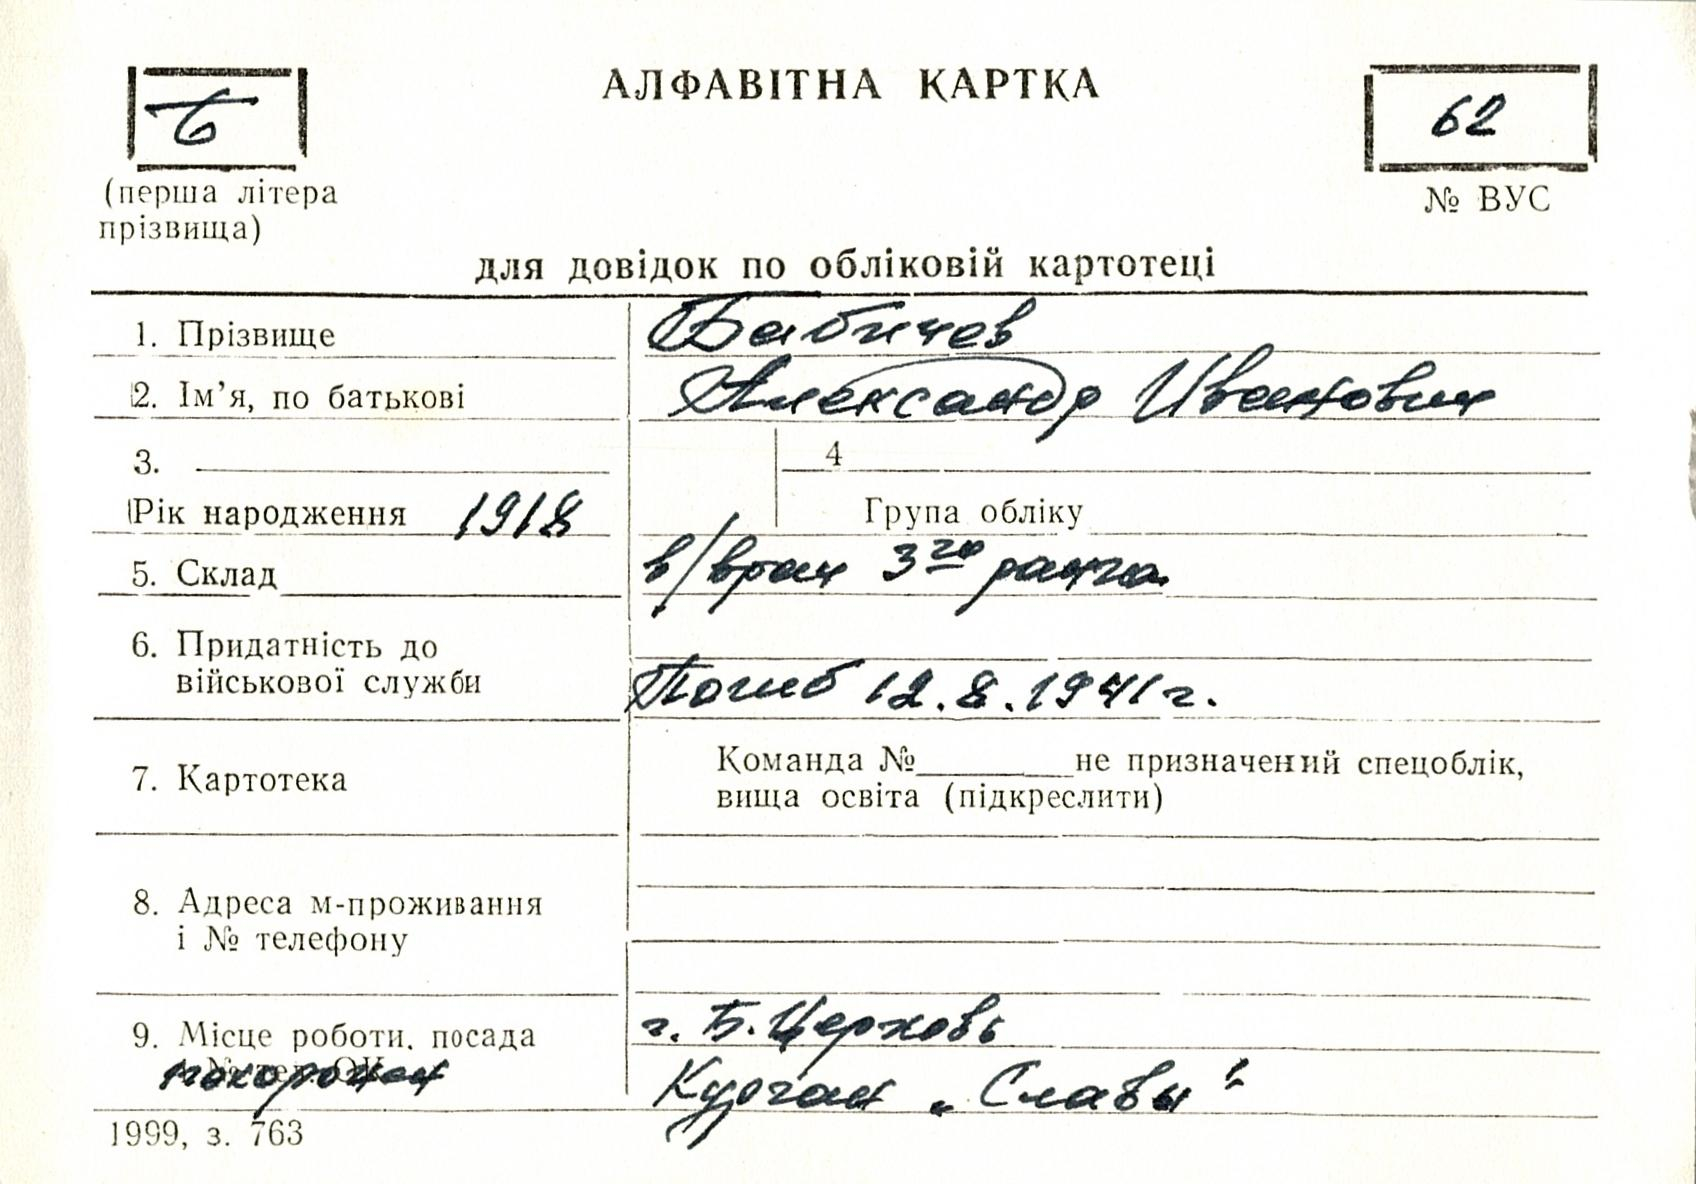 Б
АЛФАВІТНА КАРТКА
62
(перша літера
прізвища)
№ ВУС
для довідок по обліковій картотеці
1. Прізвище Бабичев
2. Ім’я, по батькові Александр Иванович
3.
4
Рік народження 1918 Група обліку
5. Склад в/врач 3го ранга
6. Придатність до
військової служби Погиб 12.8.1941 г.
7. Картотека
Команда № не призначений спецоблік,
вища освіта (підкреслити)
8. Адреса м-проживання
і № телефону
г. Б. Церковь
9. Місце роботи, посада
похоронен Курган „Славы"
1999, з. 763